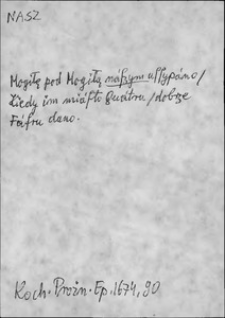 NASZ
Mogiłę pod Mogiłą nászym usypáno/
Kiedy im miásto Quatru/dobrze
Fáfru dano.
Koch. Prożn. Ep. 1674, 90